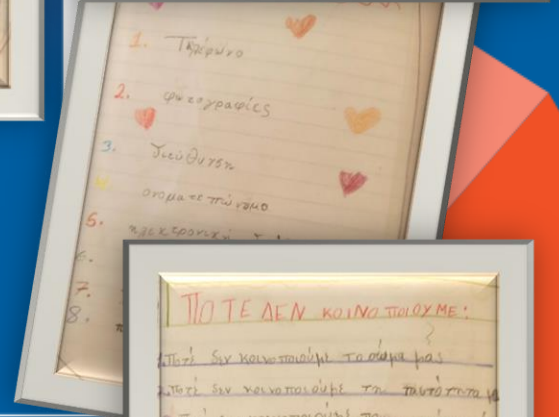 1. Τηλέφωνο
2. φωτογραφίες
3. διεύθυνση
4. ονοματεπώνυμο
5. ηλεκτρονική
6.
7.
8.
ΠΟΤΕ ΔΕΝ ΚΟΙΝΟΠΟΙΟΥΜΕ:
1. Ποτέ δεν κοινοποιούμε το σώμα μας
2. Ποτέ δεν κοινοποιούμε την ταυτότητα